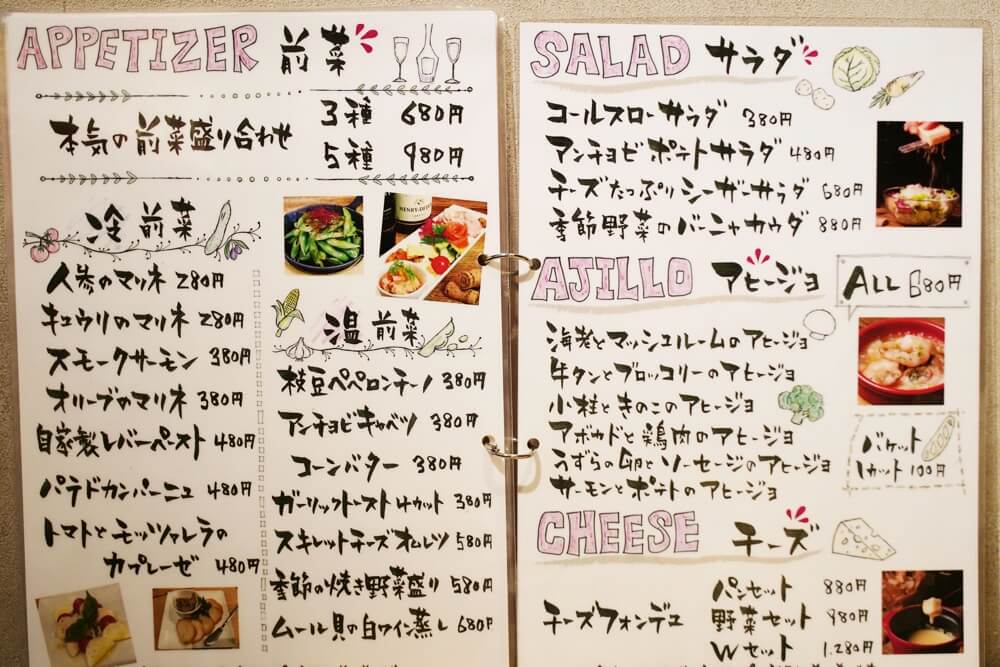 APPETIZER 前菜
本気の前菜盛り合わせ
3種 680円
5種 980円
冷前菜
人参のマリネ 280円
キュウリのマリネ 280円
スモークサーモン 380円
オリーブのマリネ 380円
自家製レバーペースト 480円
パテドカンパーニュ 480円
トマトとモッツァレラの
カプレーゼ 480円
温前菜
枝豆ペペロンチーノ 380円
アンチョビキャベツ 380円
コーンバター 380円
ガーリックトースト4カット 380円
スキレットチーズオムレツ 580円
季節の焼き野菜盛り 580円
ムール貝の白ワイン蒸し 680円
SALAD サラダ
コールスローサラダ 380円
アンチョビポテトサラダ 480円
チーズたっぷりシーザーサラダ 680円
季節野菜のバーニャカウダ 880円
AJILLO アヒージョ
ALL 680円
海老とマッシュルームのアヒージョ
牛タンとブロッコリーのアヒージョ
小柱ときのこのアヒージョ
アボカドと鶏肉のアヒージョ
うずらの卵とソーセージのアヒージョ
サーモンとポテトのアヒージョ
バケット
1カット 100円
CHEESE チーズ
チーズフォンデュ
パンセット 880円
野菜セット 980円
Wセット 1,280円